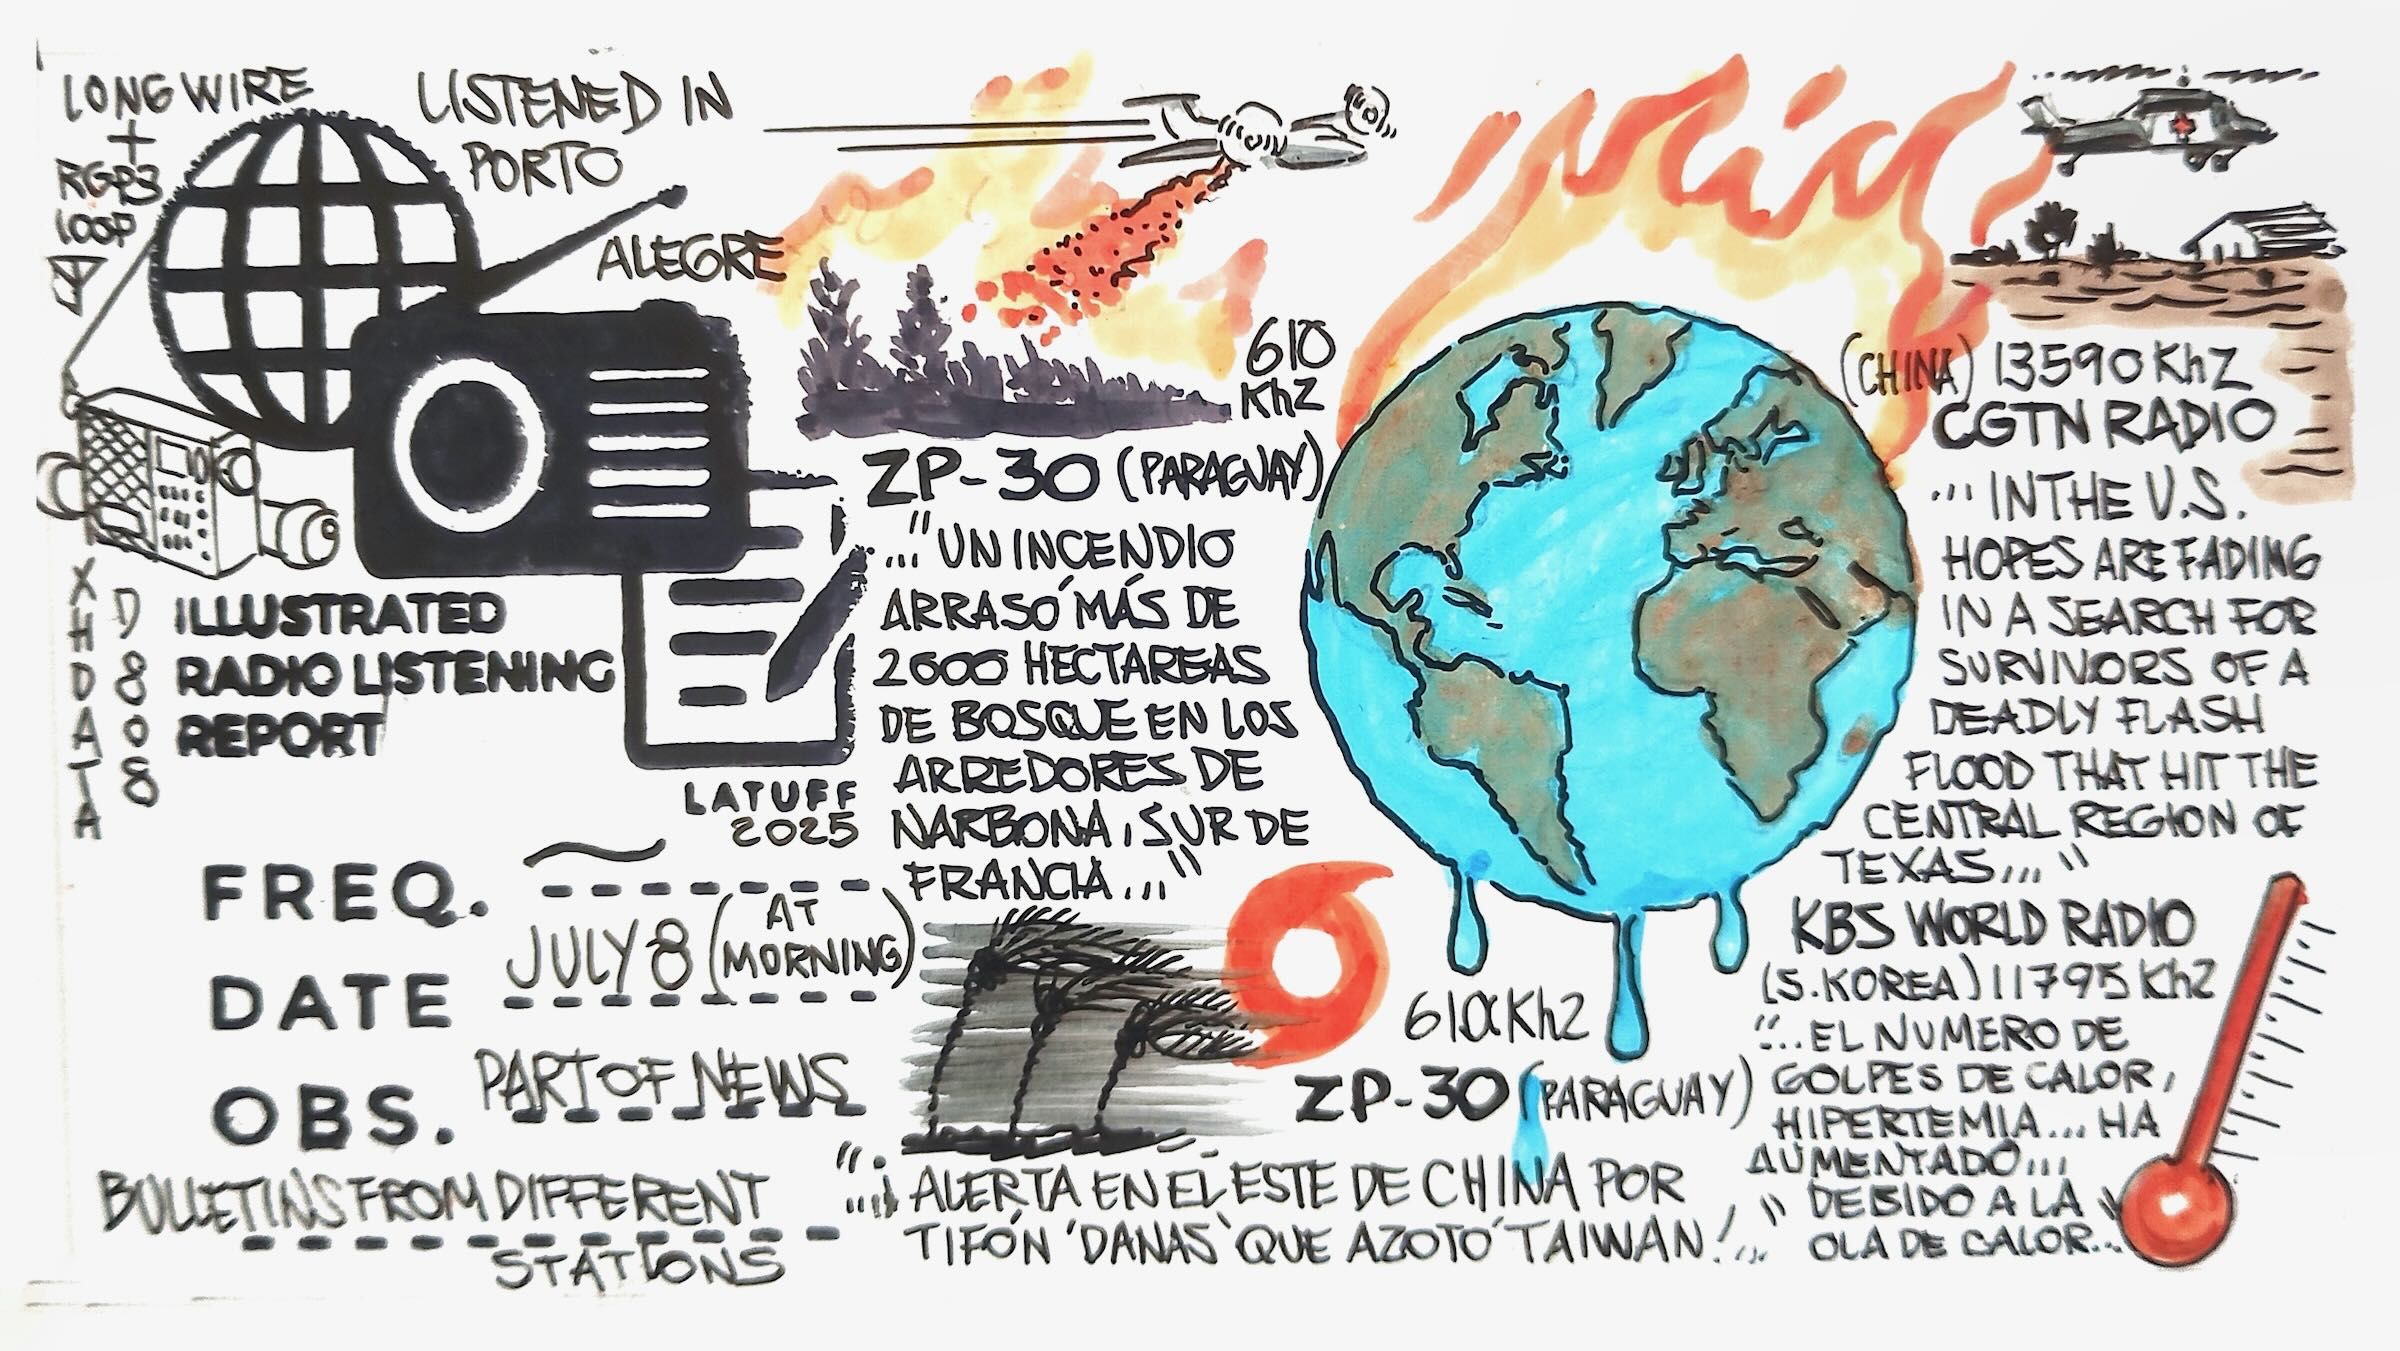 LONG WIRE
+
RGP3
LOOP
LISTENED IN
PORTO
ALEGRE
XHDATA
D808
ILLUSTRATED
RADIO LISTENING
REPORT
LATUFF
2025
FREQ.
DATE
JULY 8 (AT MORNING)
OBS.
PART OF NEWS
BULLETINS FROM DIFFERENT
STATIONS
610
KhZ
ZP-30 (PARAGUAY)
..."UN INCENDIO
ARRASÓ MÁS DE
2000 HECTAREAS
DE BOSQUE EN LOS
ARREDORES DE
NARBONA, SUR DE
FRANCIA..."
610 KhZ
ZP-30 (PARAGUAY)
"...¡ALERTA EN EL ESTE DE CHINA POR
TIFÓN 'DANAS' QUE AZOTÓ TAIWAN!..."
(CHINA) 13590 KhZ
CGTN RADIO
... IN THE U.S.
HOPES ARE FADING
IN A SEARCH FOR
SURVIVORS OF A
DEADLY FLASH
FLOOD THAT HIT THE
CENTRAL REGION OF
TEXAS..."
KBS WORLD RADIO
(S. KOREA) 11795 KhZ
"...EL NUMERO DE
GOLPES DE CALOR,
HIPERTEMIA... HA
AUMENTADO...
DEBIDO A LA
OLA DE CALOR..."